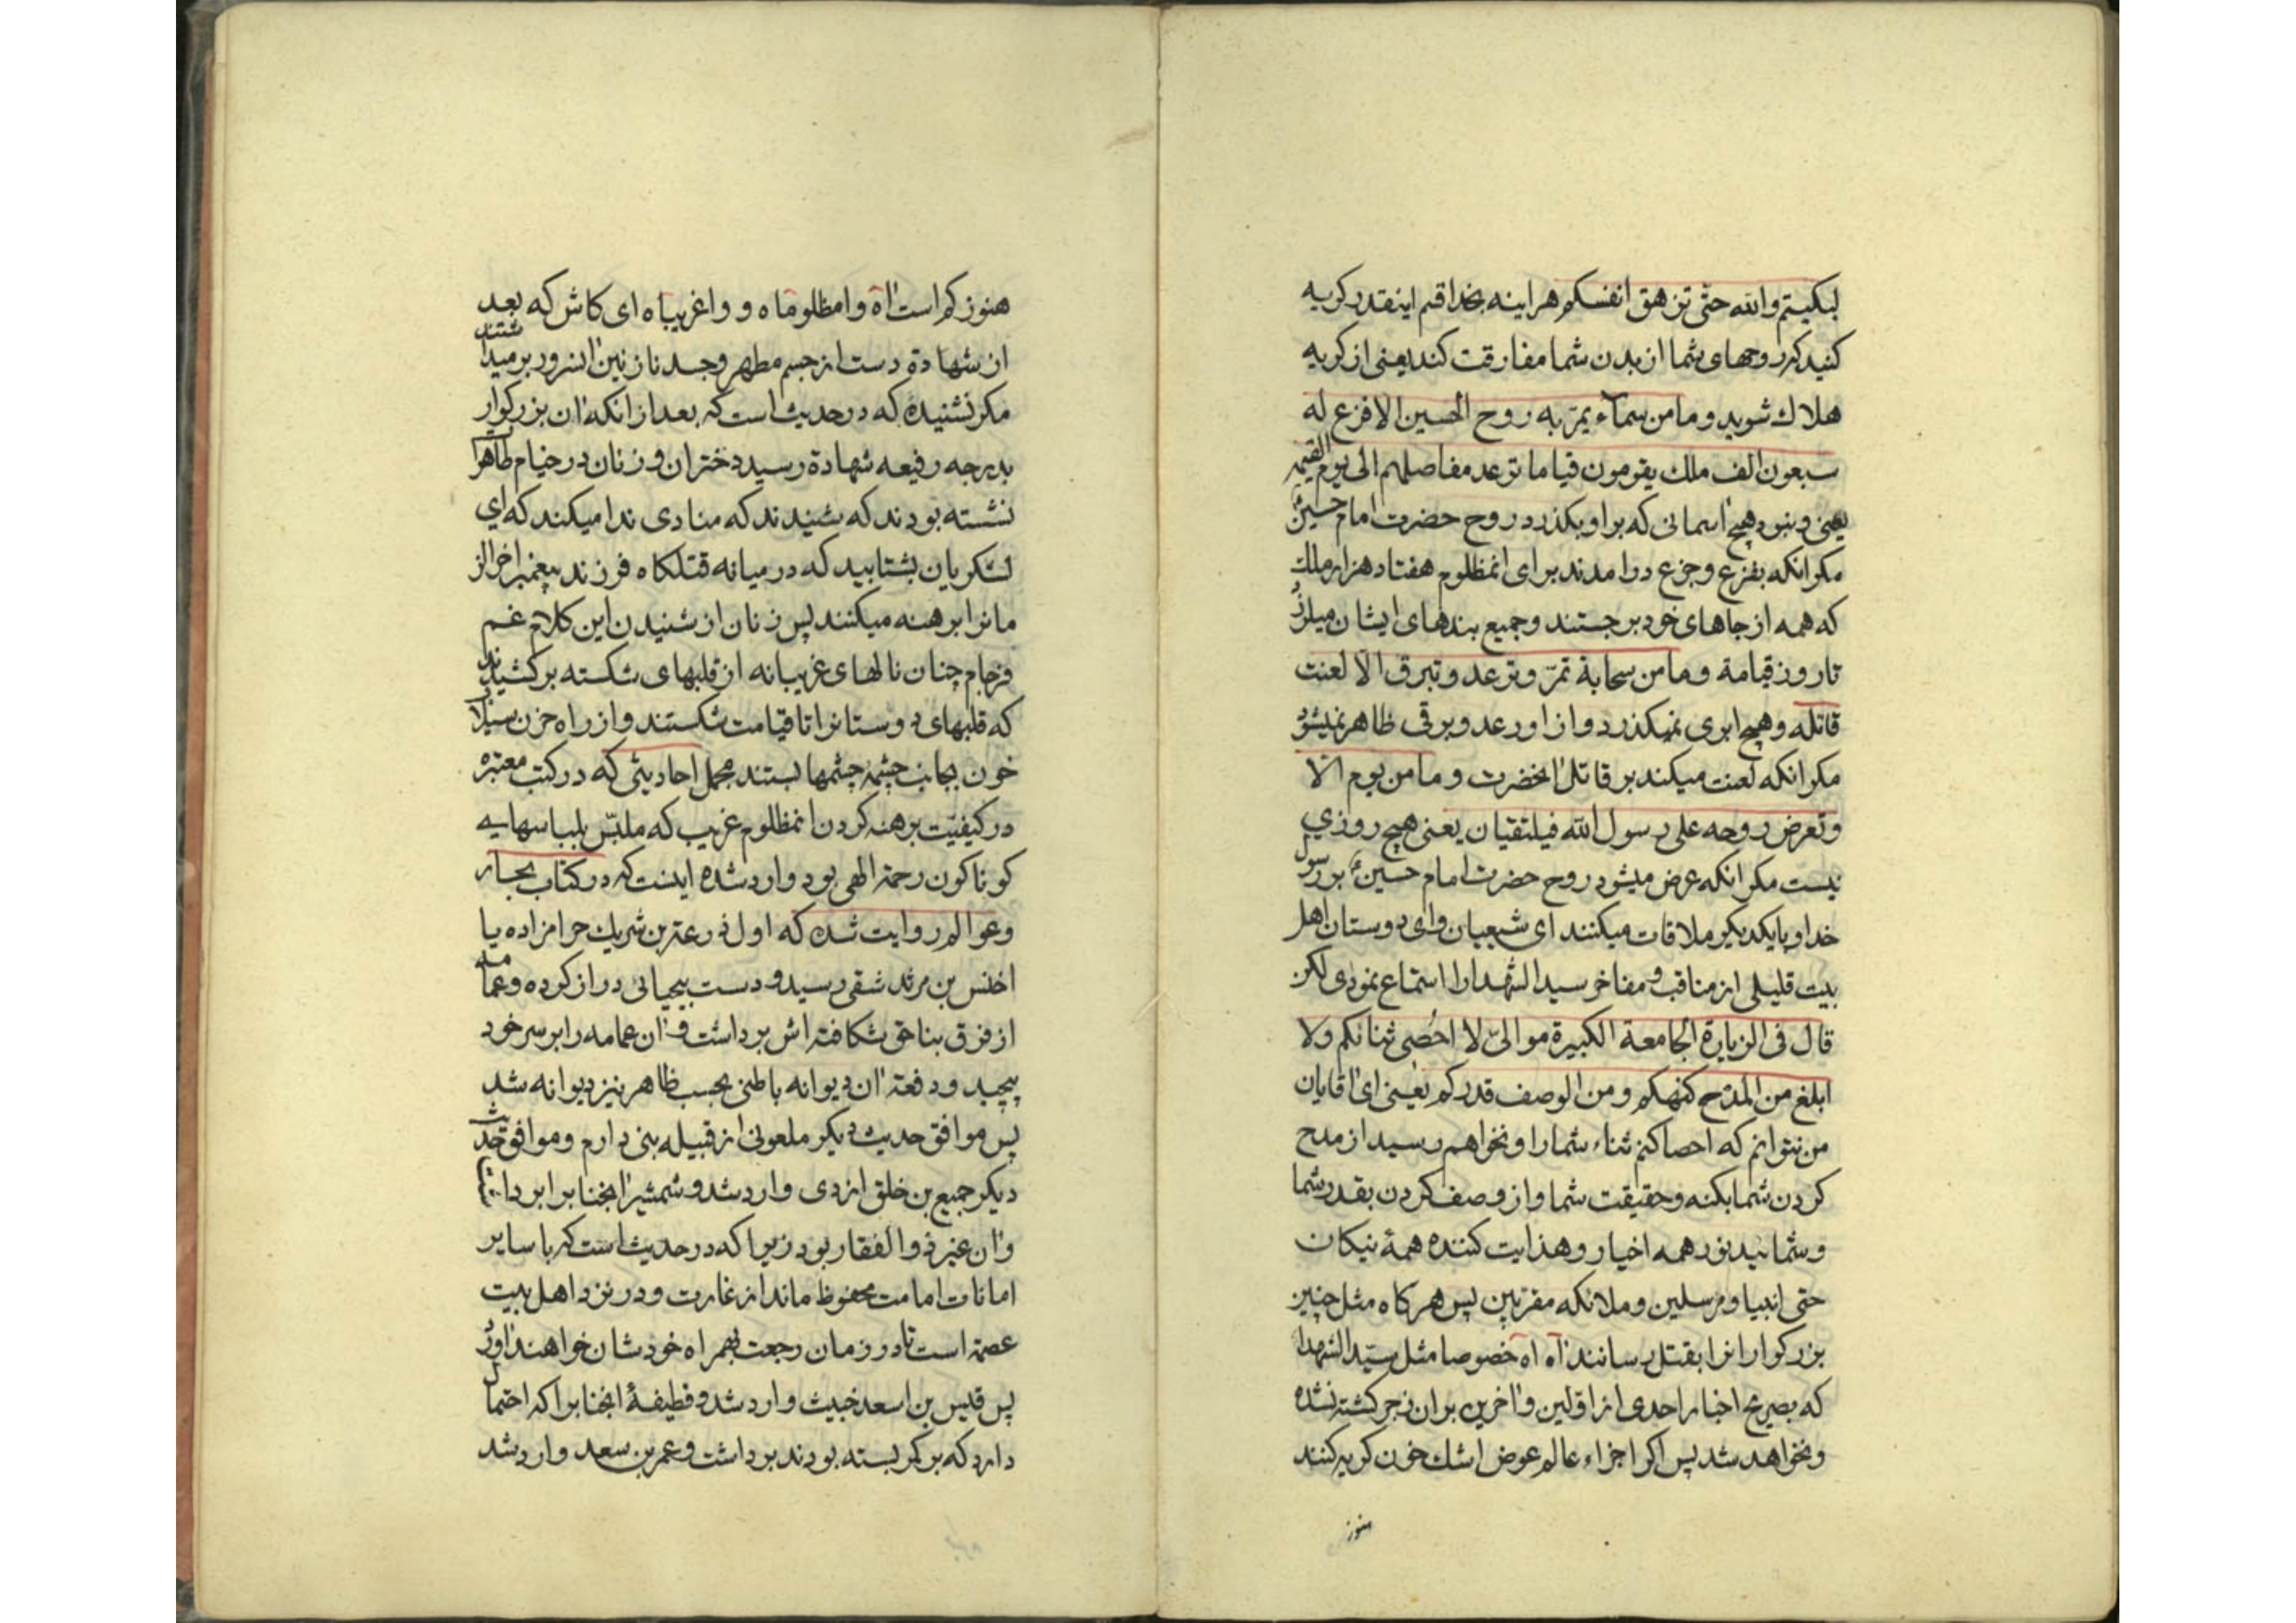 لبکیتم والله حتّی تزهق انفسکم هراینه بخدا قسم اینقدر کریه
کنید که روحهای شما از بدن شما مفارقت کند یعنی از کریه
هلاك شوید و ما من سمآء یمرّ به روح الحسین الا فزع له
سبعون الف ملك یقومون قیاما ترعد مفاصلهم الی یوم القیمه
یعنی و نبود هیچ اسمانی که بر او بکذرد روح حضرت امام حسین
مکر انکه بفزع و جزع درامدند برای انمظلوم هفتاد هزار ملك
که همه از جاهای خود برجستند و جمیع بندهای ایشان میلرزد
تا روز قیامة و ما من سحابة تمرّ و ترعد و تبرق الا لعنت
قاتله و هیچ ابری نمیکذرد و از او رعد و برقی ظاهر نمیشود
مکر انکه لعنت میکند بر قاتل انحضرت و ما من یوم الّا
وتعرض روحه علی رسول الله فیلتقیان یعنی هیچ روزی
نیست مکر انکه عرض میشود روح حضرت امام حسینؑ بر رسول
خدا و بایکدیکر ملاقات میکنند ای شیعیان وای دوستان اهل
بیت قلیلی از مناقب و مفاخر سید الشهدا را استماع نمودی لکن
قال فی الزیارة الجامعة الکبیرة موالیّ لا احُصی ثنائکم ولا
ابلغ من المدح کنهکم و من الوصف قدرکم یعنی ای اقایان
من نتوانم که احصا کنم ثناء شما را و نخواهم رسید از مدح
کردن شما بکنه و حقیقت شما و از وصف کردن بقدر شما
و شمائید نور همه اخیار و هذایت کننده همهٔ نیکان
حتی انبیا و مرسلین و ملائکه مقربین پس هرکاه مثل چنین
بزرکوارانرا بقتل رسانند اه اه خصوصا مثل سیّد الشهدا
که بصریح اخبار احدی از اوّلین و اخرین بران زجر کشته نشده
و نخواهد شد پس اکر اجزاء عالم عوض اشك خون کریه کنند
هنوز
هنوز کم است اه وامظلوماه و واغریباه ای کاش که بعد
از شهادة دست از جسم مطهر و جسد نازنین انسرور برمیداشتند
مکر نشنیده که در حدیث است که بعد از انکه ان بزرکوار
بدرجه رفیعه شهادة رسید دختران و زنان در خیام طاهرا
نشسته بودند که شنیدند که منادی ندا میکند که ای
لشکریان بشتابید که در میانه قتلکاه فرزند پیغمبر اخرالز
مانرا برهنه میکنند پس زنان از شنیدن این کلام غم
فرجام چنان نالهای غریبانه از قلبهای شکسته برکشیدند
که قلبهای دوستانرا تا قیامت شکستند و از راه حزن سیلاب
خون بجانب چشمه چشمها بستند مجمل احادیثی که در کتب معتبره
در کیفیّت برهنه کردن انمظلوم غریب که ملبّس بلباسهایه
کوناکون رحمة الهی بود وارد شده اینست که در کتاب بحار
و عوالم روایت شده که اول ذرعة بن شریك حرامزاده یا
اخنس بن مرثد شقی رسید و دست بیحیائی دراز کرده و عمامه
از فرق بناحق شکافته اش برداشت و ان عمامه را بر سر خود
پیچید و دفعة ان دیوانه باطنی بحسب ظاهر نیز دیوانه شد
پس موافق حدیث دیکر ملعونی از قبیله بنی دارم و موافق حدیث
دیکر جمیع بن خلق ازدی وارد شد و شمشیر انجنابرا برداشت
و ان غیر ذوالفقار بود زیرا که در حدیث است که با سایر
امانات امامت محفوظ ماند از غارت و در نزد اهل بیت
عصمة است تا در زمان رجعت بهمراه خودشان خواهند اورد
پس قیس بن اسعد خبیث وارد شد و قطیفهٔ انجنابرا که احتمال
دارد که بر کمر بسته بودند برداشت و عمر بن سعد وارد شد